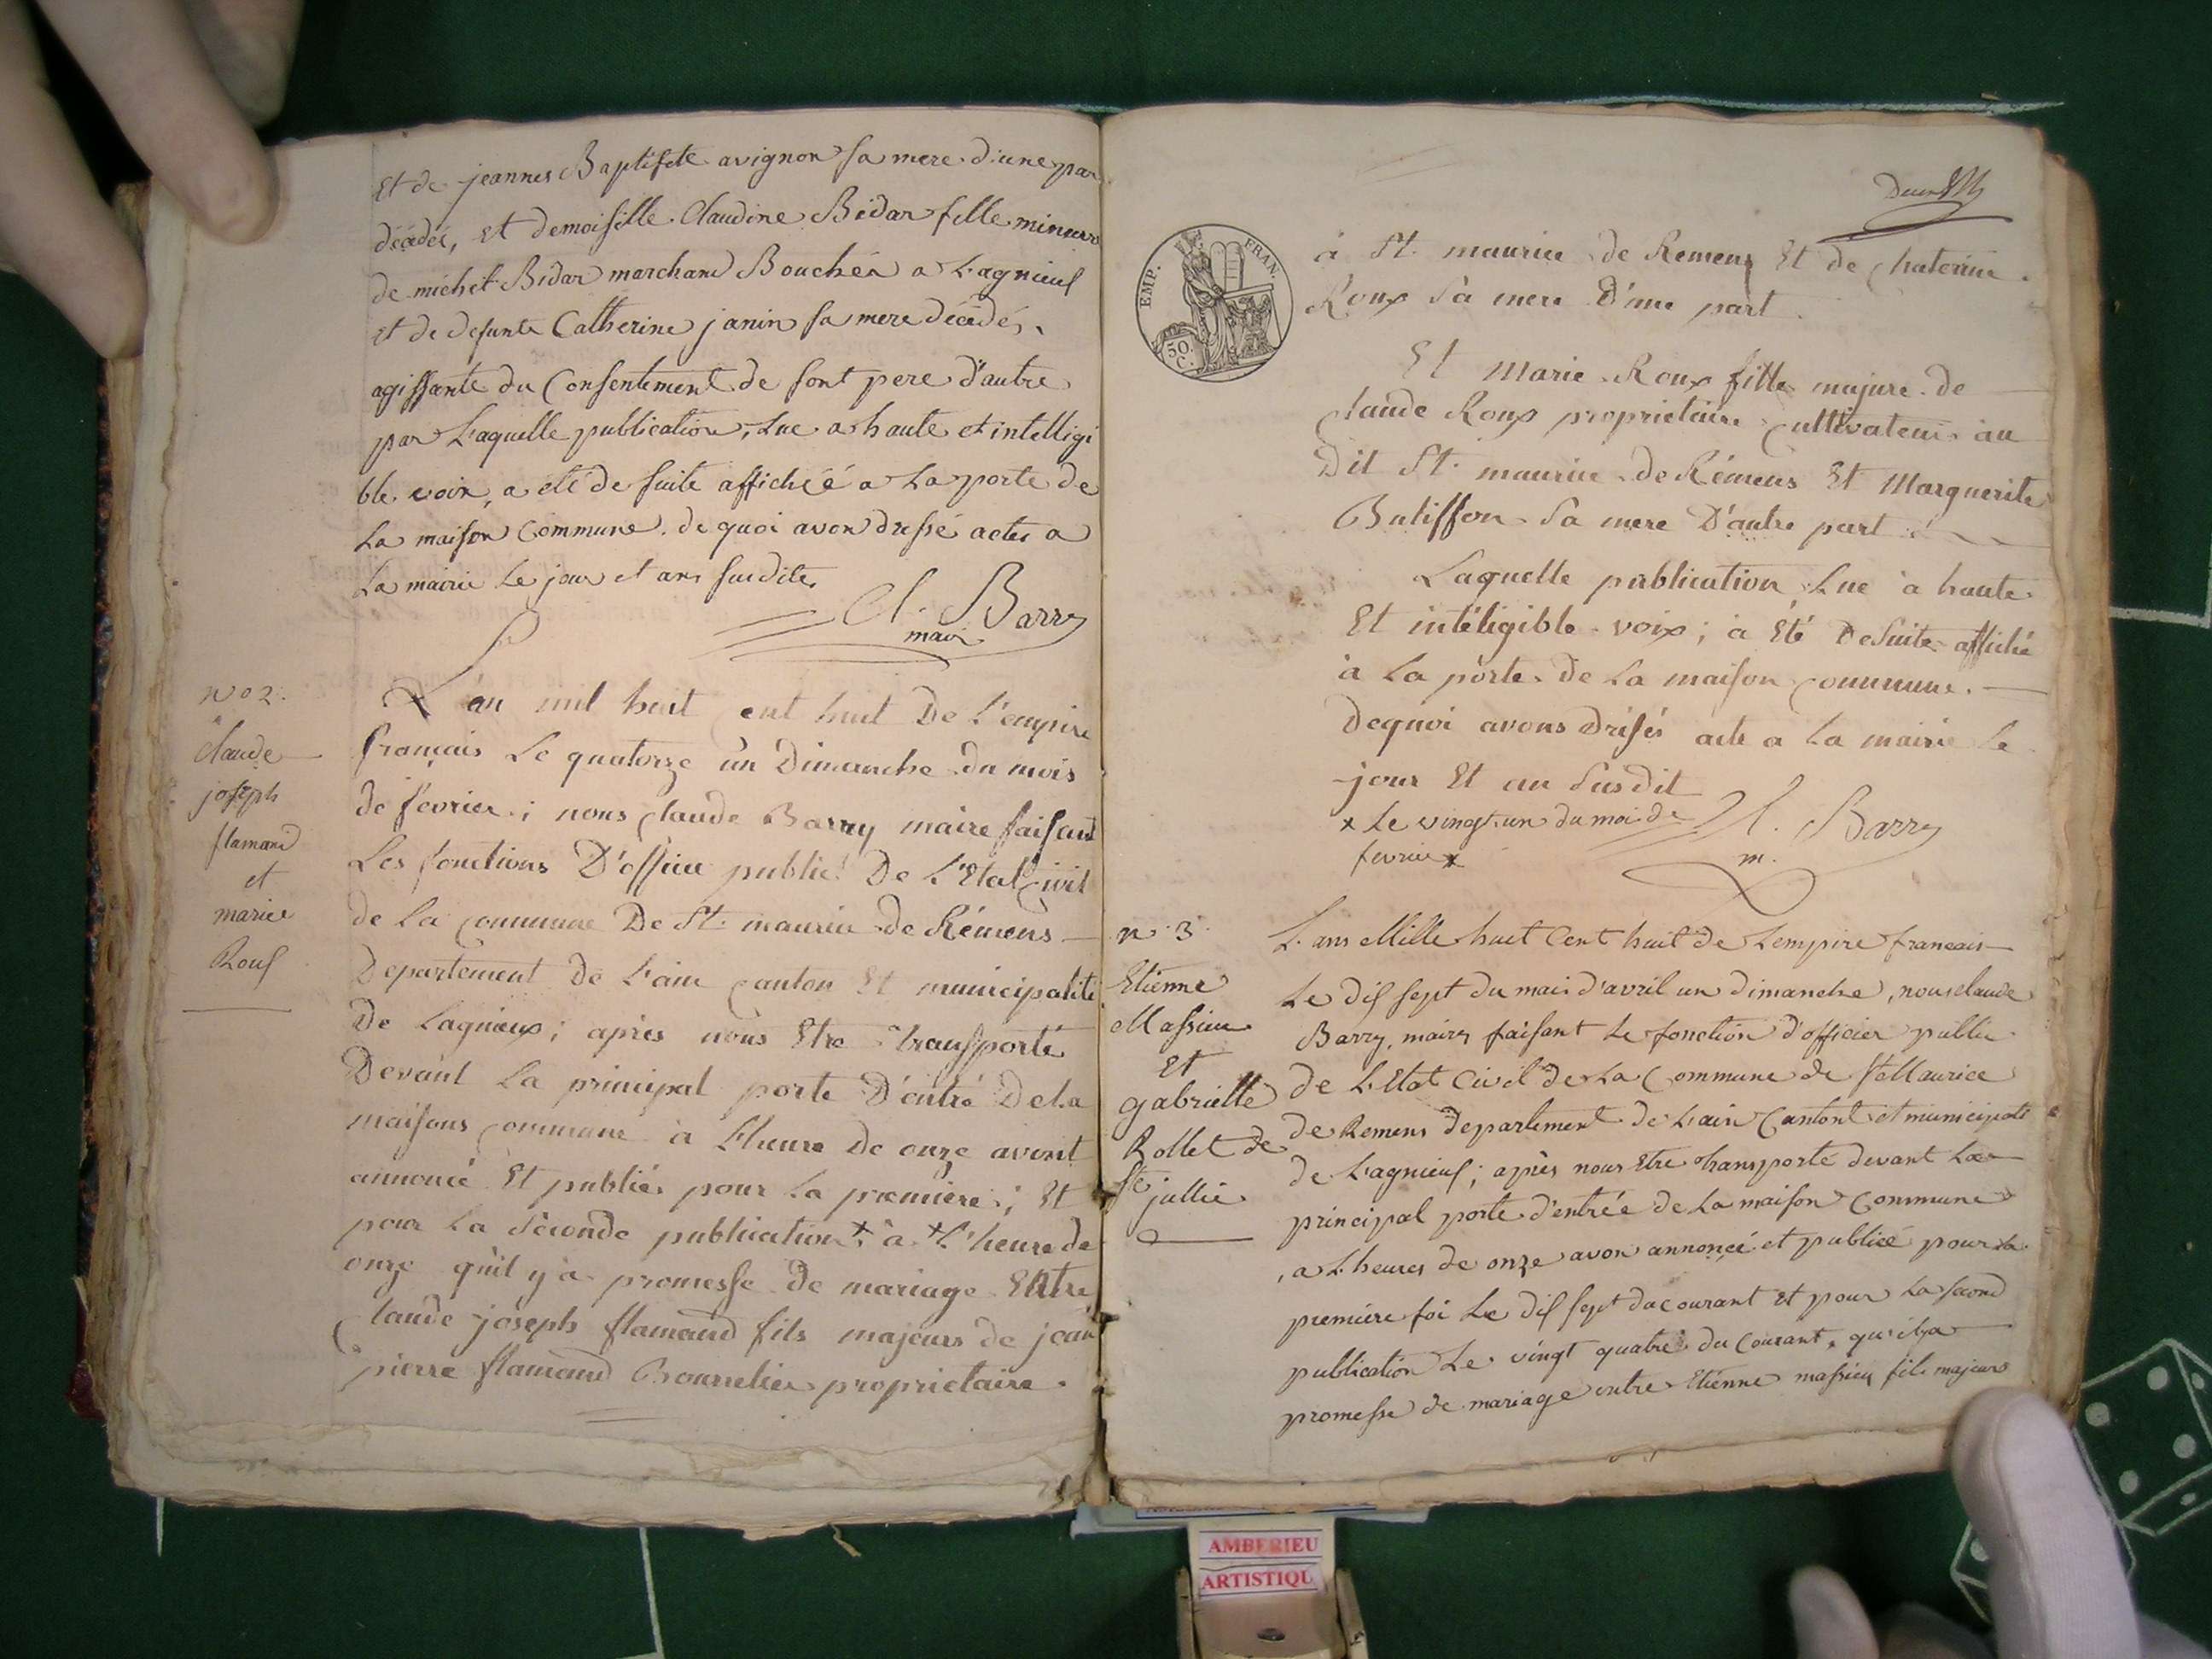 Et de jeannes Baptiste avignon sa mere d'une par
décédés, et demoiselle Claudine Bidar fille mineure
de michel Bidar marchand Bouchér a Lagnieuf
et de defunte Catherine janin sa mere décédés,
agissante du Consentement de sont pere d'autre
par Laquelle publication, Lue a haute et intelligi
ble voix, a eté de suite affichéé a La porte de
La maison Commune. de quoi avon dressé actes a
La mairie Le jour et ans susdites
Cl. Barry
maire
N° 2.
Claude
joseph
flamand
et
marie
Rouf
L'an mil huit cent huit De L'empire
français Le quatorze un Dimanche du mois
de fevrier ; nous Claude Barry maire faisant
Les fonctions D'officie public De L'Etat Civil
de La Commune De St. maurice de Rémens
Departement de L'ain Canton Et municipalité
De Lagnieux ; après nous Etre transporté
Devant La principal porte D'éntré De La
maisons Commune à L'heure De onze avont
annoncé Et publiés pour La premiere ; Et
pour La séconde publication x à x L'heure de
onze qu'il y a promesse de mariage Entre
Claude joseph flamand fils majeurs de jean
pierre flamand Bourrelier proprietaire.
EMP. FRAN.
50.
C.
à St. maurice de Remens Et de Chaterine
Roux Sa mere D'une part.
Et Marie Roux fille majure de
Claude Roux proprietaire Cultivateur au
Dit St. maurice de Rémens Et Marguerite
Butiffon Sa mere D'autre part
Laquelle publication Lue à haute
Et intéligible voix ; à Eté De Suite affiché
à La porte De La maison Commune.
Dequoi avons Drésés acte a La mairie Le
jour Et an Susdit
x Le vingt un du moi de
fevrier x
Cl. Barry
m.
n. 3.
Etienne
Massieu
Et
gabrielle
Rollet de
St
jullie
L. ans Mille huit Cent huit de Lempire francais
Le dis sept du mois d'avril un dimanche, nous claude
Barry, maire faisant Le fonction d'officier public
de L'Etat Civil de La Commune de St Maurice
de Remens departement de L'ain Cantont et municipali
de Lagnieuf ; après nous Etre transporté devant La
principal porte d'entrée de La maison Commune
, a L'heures de onze avon annoncé et publiéé pour la
premiere foi Le dis sept du courant et pour La second
publication Le vingt quatre du Courant, qu'il ya
promesse de mariage entre Etienne massieu fils majeur
AMBERIEU
ARTISTIQU